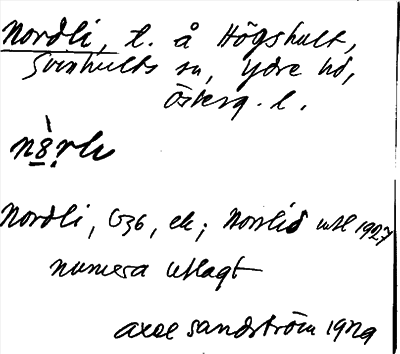 Nordli, t. å Högshult,
Svinhults sn, Ydre hd,
Österg. l.
Nordli, G36, ek; Norrlid utsl 1927
numera utlagt
Axel Sandström 1929